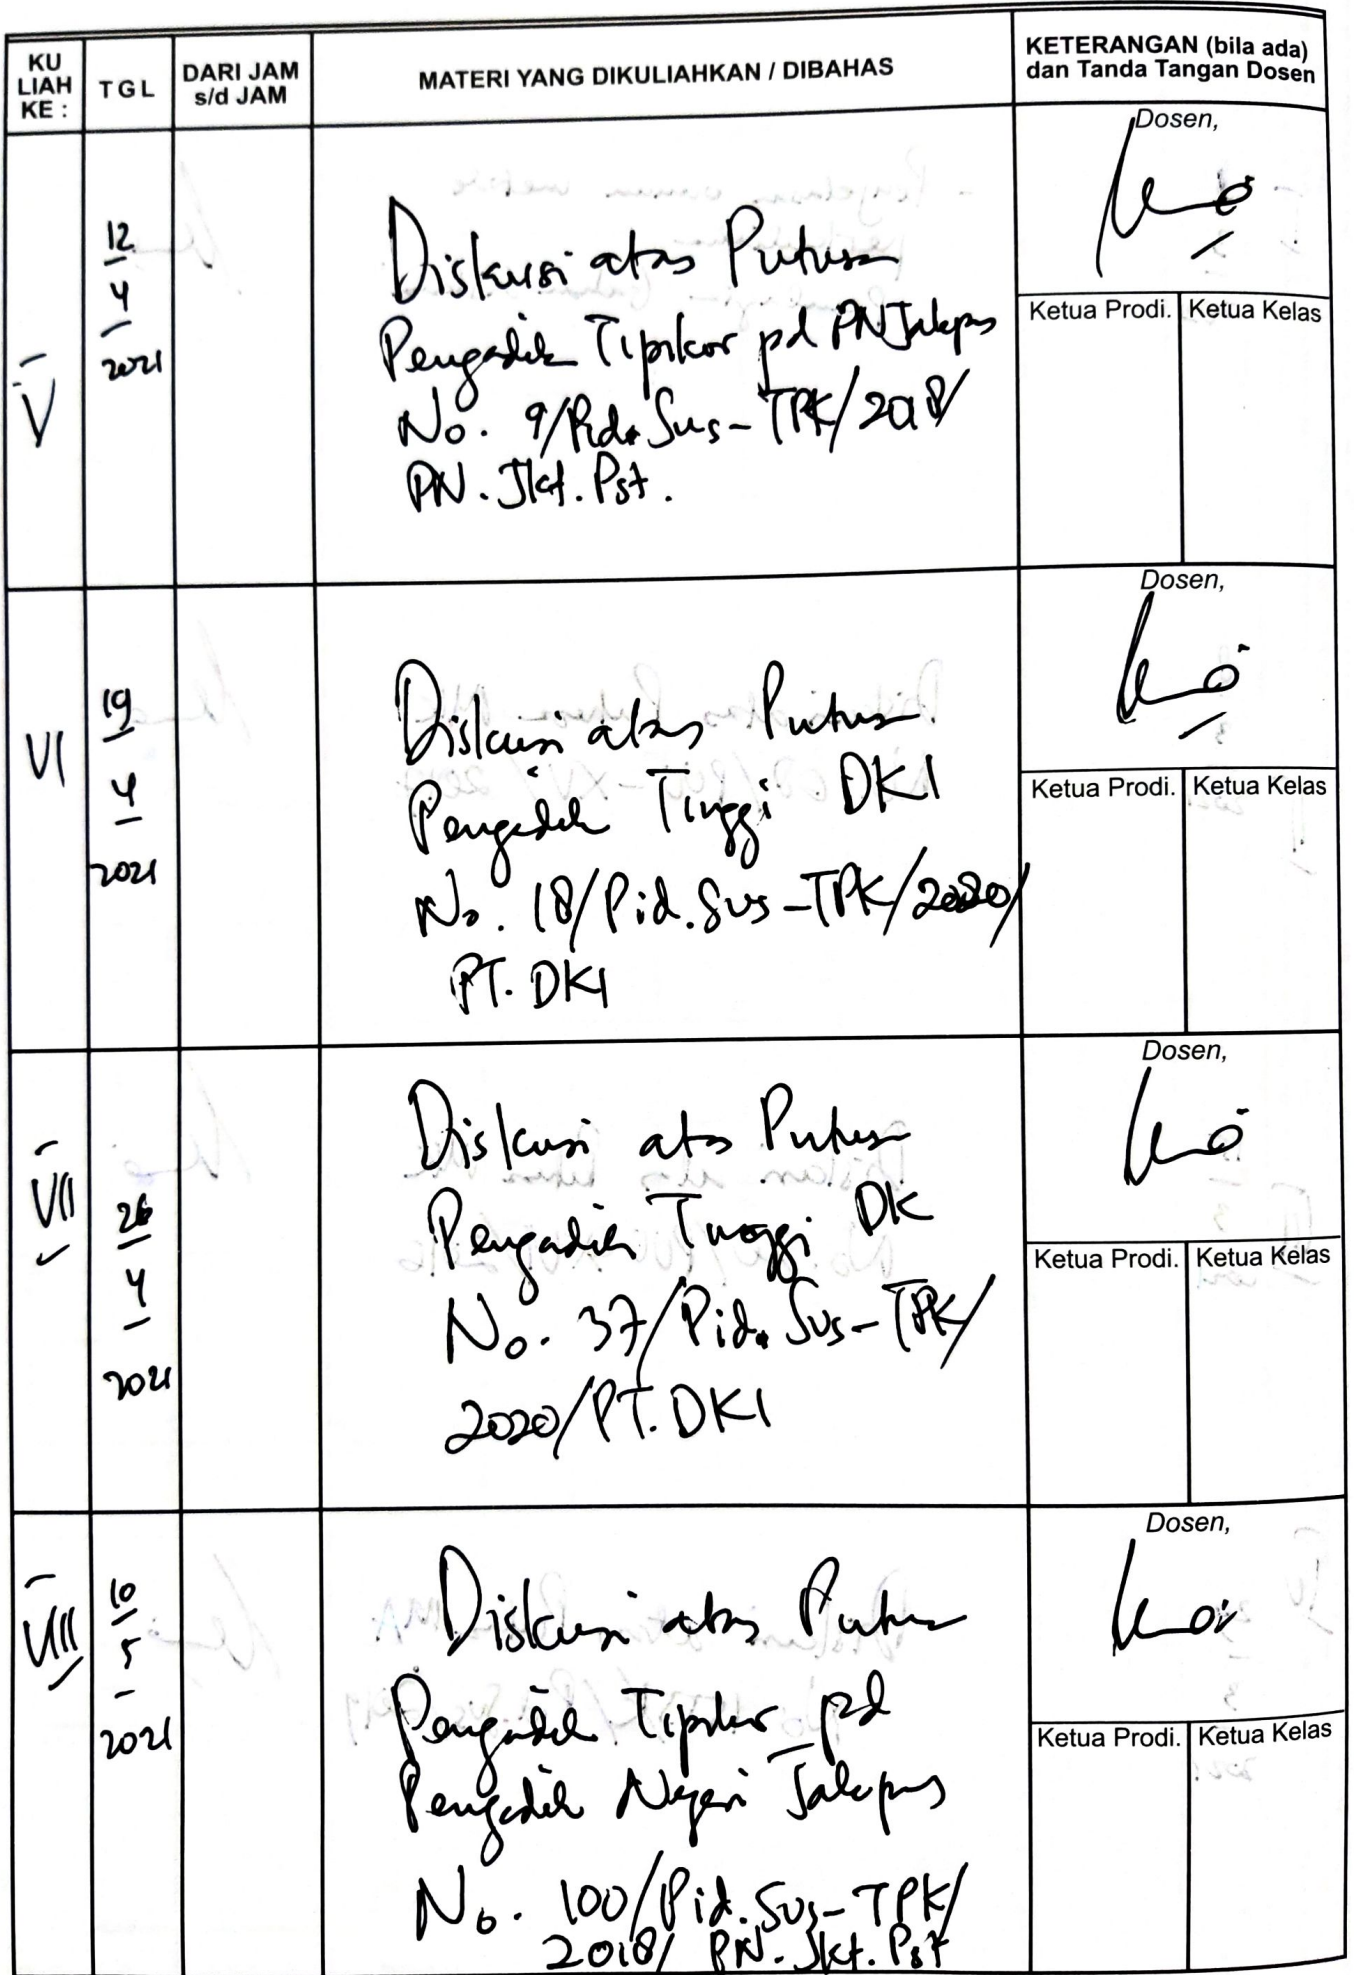 KU LIAH KE :
TGL
DARI JAM s/d JAM
MATERI YANG DIKULIAHKAN / DIBAHAS
KETERANGAN (bila ada) dan Tanda Tangan Dosen
V
12
4
2021
Diskusi atas Putusan
Pengadilan Tipikor pd PN Jakpus
No. 9/Pid.Sus-TPK/2018/
PN. Jkt. Pst.
Dosen,
Ketua Prodi. Ketua Kelas
VI
19
4
2021
Diskusi atas Putusan
Pengadilan Tinggi DKI
No. 18/Pid.Sus-TPK/2020/
PT. DKI
Dosen,
Ketua Prodi. Ketua Kelas
VII
26
4
2021
Diskusi atas Putusan
Pengadilan Tinggi DK
No. 37/Pid.Sus-TPK/
2020/PT.DKI
Dosen,
Ketua Prodi. Ketua Kelas
VIII
10
5
2021
Diskusi atas Putusan
Pengadilan Tipikor pd
Pengadilan Negeri Jakpus
No. 100/Pid.Sus-TPK/
2018/ PN. Jkt. Pst
Dosen,
Ketua Prodi. Ketua Kelas